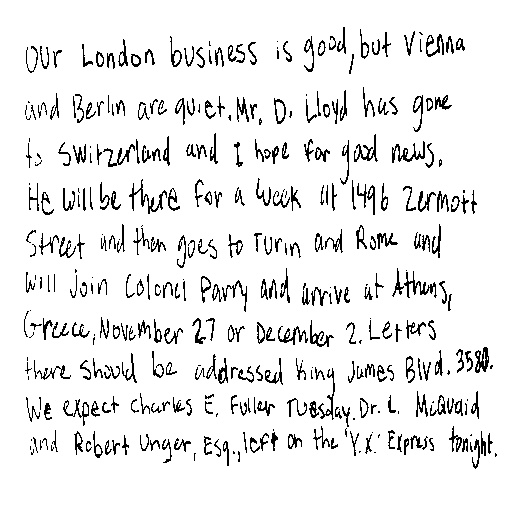 Our London business is good, but Vienna
and Berlin are quiet. Mr. D. Lloyd has gone
to Switzerland and I hope for good news.
He will be there for a week at 1496 Zermott
Street and then goes to Turin and Rome and
will join Colonel Parry and arrive at Athens,
Greece, November 27 or December 2. Letters
there should be addressed King James Blvd. 3580.
We expect Charles E. Fuller Tuesday. Dr. L. McQuaid
and Robert Unger, Esq., left on the 'Y.X.' Express tonight.